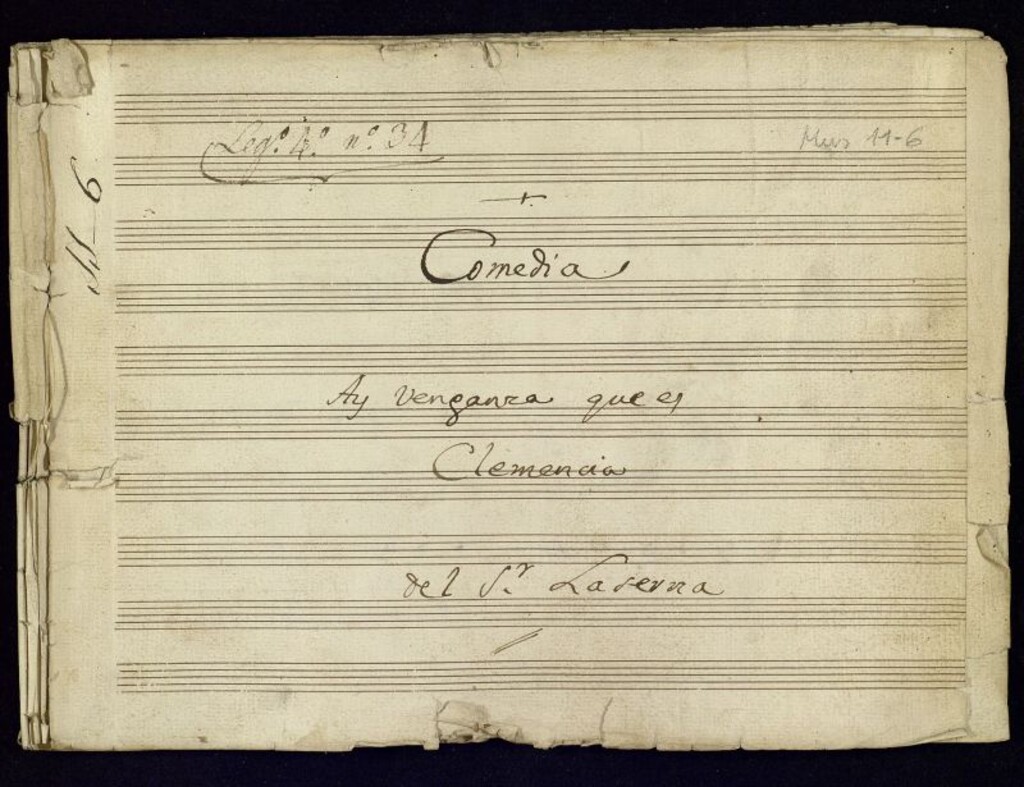 Leg.º 4.º n.º 34
Mus 11-6
11-6
+
Comedia
Ay Venganza que es
Clemencia
del S.r Laserna